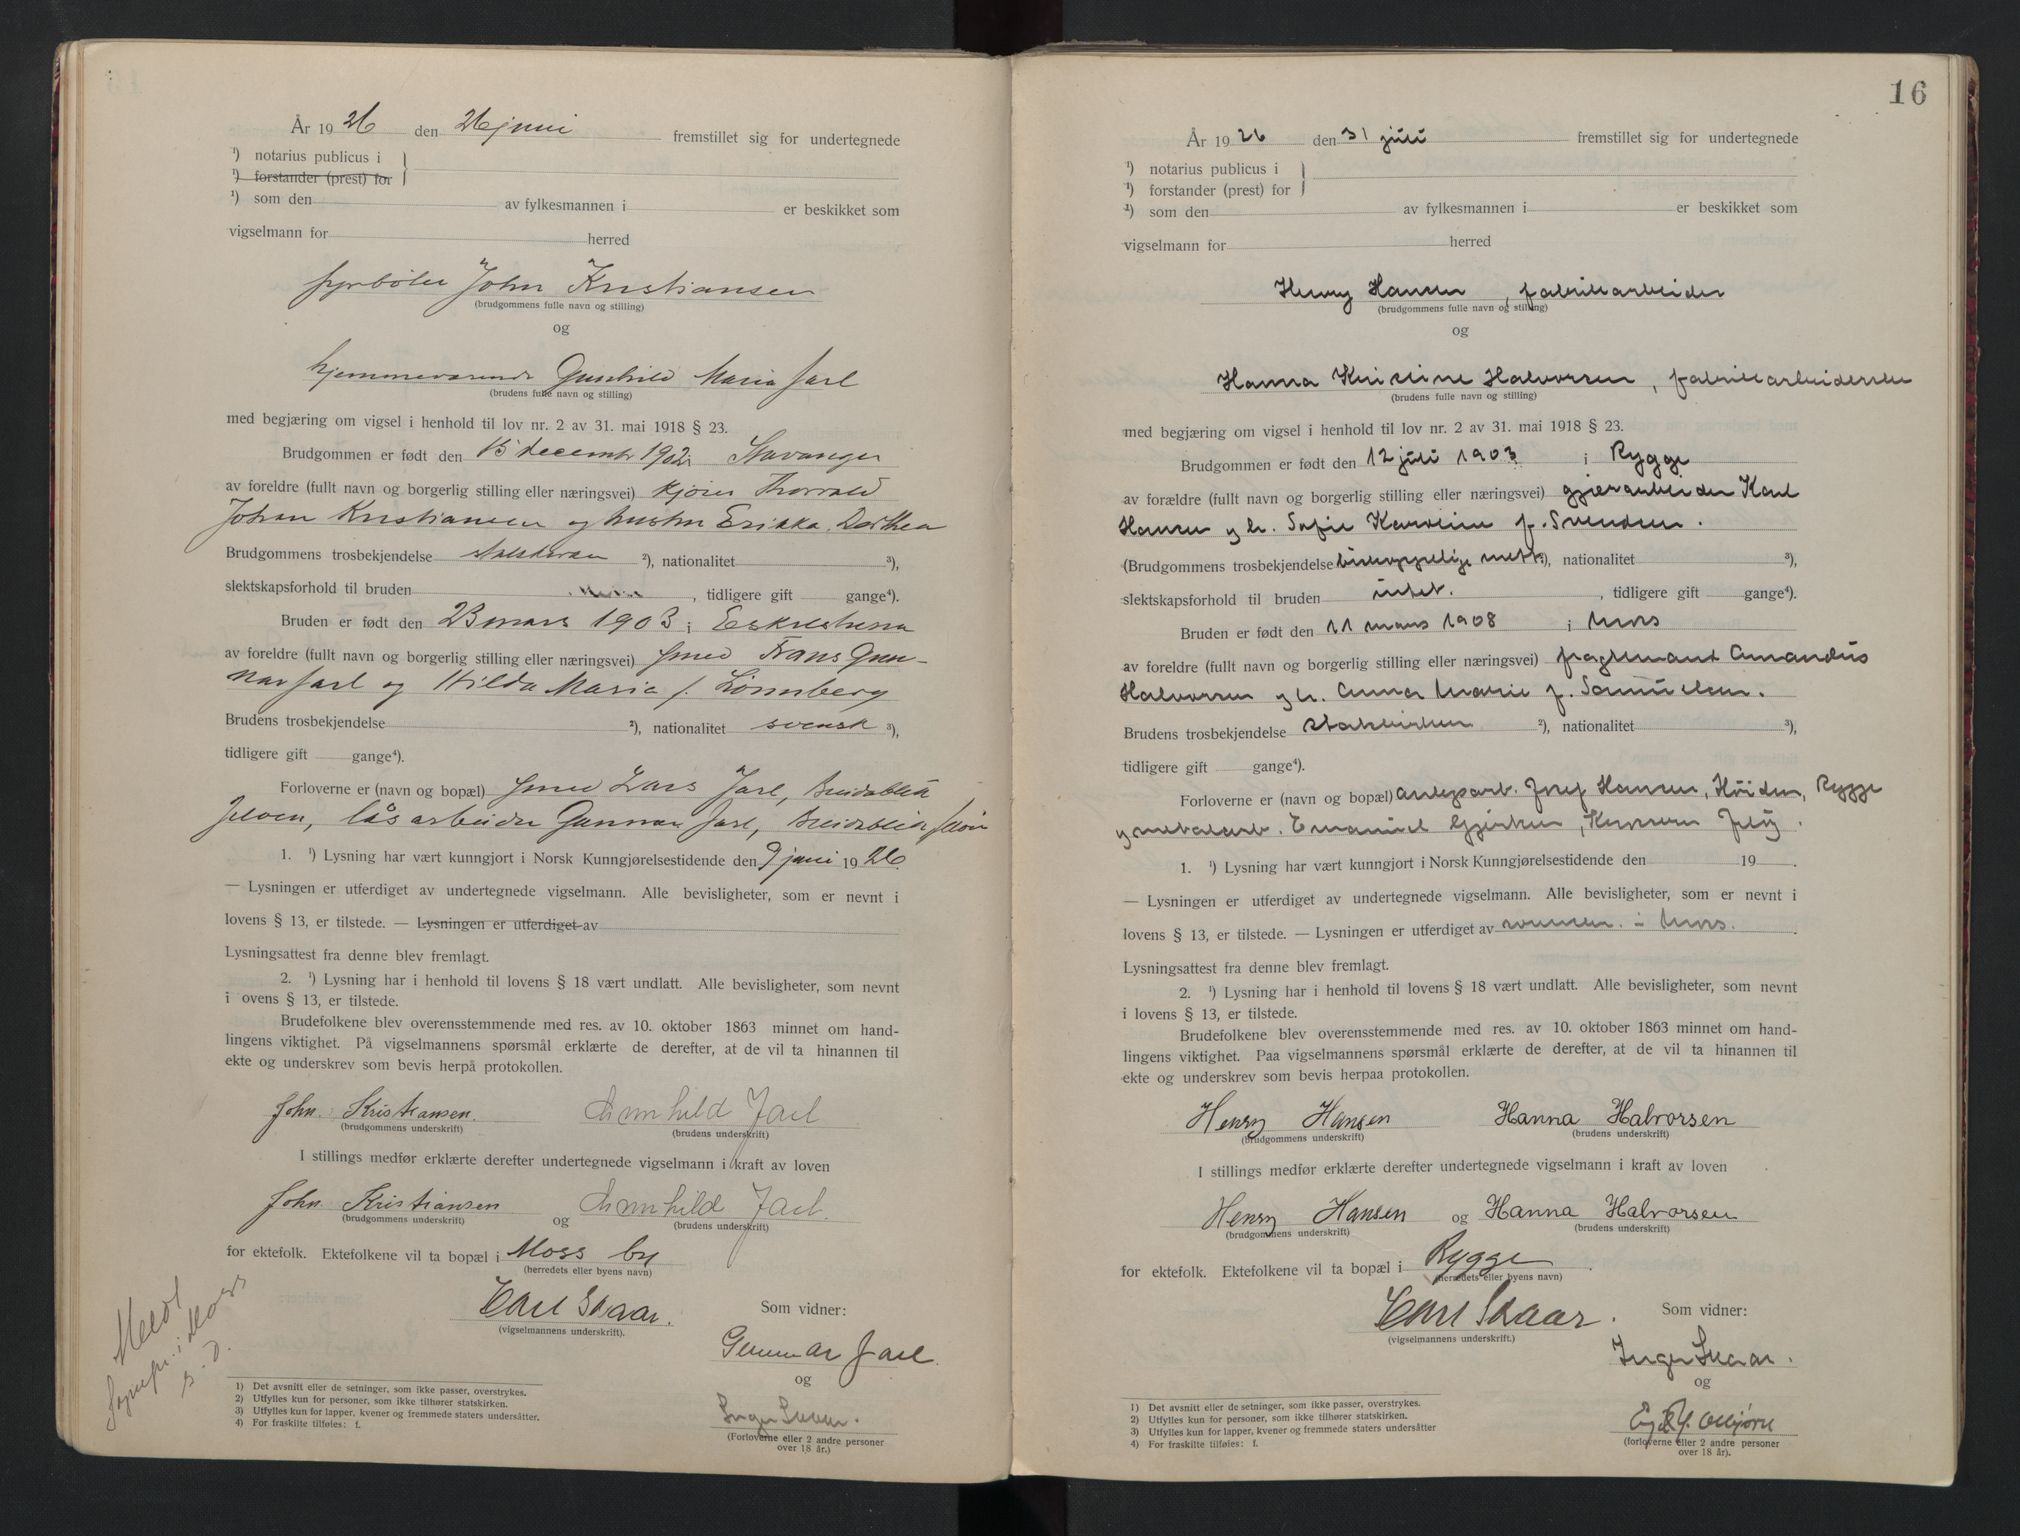 År 1926 den 26 juni fremstillet sig for undertegnede
¹) notarius publicus i
¹) forstander (prest) for
¹) som den av fylkesmannen i er beskikket som
vigselmann for herred
fyrbøter John Kristiansen
(brudgommens fulle navn og stilling)
og
hjemmeværende Gunhild Maria Jarl
(brudens fulle navn og stilling)
med begjæring om vigsel i henhold til lov nr. 2 av 31. mai 1918 § 23.
Brudgommen er født den 15 decembr 1902 i Stavanger
av foreldre (fullt navn og borgerlig stilling eller næringsvei) Thorvald
Johan Kristiansen og hustru Erikka Dorthea
Brudgommens trosbekjendelse ²), nationalitet ³),
slektskapsforhold til bruden , tidligere gift gange⁴).
Bruden er født den 23 mars 1903 i Eskilstuna
av foreldre (fullt navn og borgerlig stilling eller næringsvei) smed Frans Gun-
nar Jarl og Hilda Maria f. Lönnberg
Brudens trosbekjendelse ²), nationalitet svensk ³),
tidligere gift gange⁴).
Forloverne er (navn og bopæl) smed Lars Jarl, Breidablik
Jeløen, låsarbeider Gunnar Jarl, Breidablik Jeløen
1. ¹) Lysning har vært kunngjort i Norsk Kunngjørelsestidende den 9 juni 1926.
— Lysningen er utferdiget av undertegnede vigselmann. Alle bevisligheter, som er nevnt i
lovens § 13, er tilstede. — Lysningen er utferdiget av
Lysningsattest fra denne blev fremlagt.
2. ¹) Lysning har i henhold til lovens § 18 vært undlatt. Alle bevisligheter, som nevnt
i ovens § 13, er tilstede.
Brudefolkene blev overensstemmende med res. av 10. oktober 1863 minnet om hand-
lingens viktighet. På vigselmannens spørsmål erklærte de derefter, at de vil ta hinannen til
ekte og underskrev som bevis herpå protokollen.
John. Kristiansen. Gunhild Jarl
(brudgommens underskrift) (brudens underskrift)
I stillings medfør erklærte derefter undertegnede vigselmann i kraft av loven
John Kristiansen og Gunhild Jarl.
(brudgommens underskrift) (brudens underskrift)
for ektefolk. Ektefolkene vil ta bopæl i Moss by
(herredets eller byens navn)
Carl Skaar. Som vidner:
(vigselmannens underskrift).
Gunnar Jarl.
og
Inger Skaar.
(Forloverne eller 2 andre personer
over 18 år.)
Meldt
Sognepr. i Moss
s. d.
1) Det avsnitt eller de setninger, som ikke passer, overstrykes.
2) Utfylles kun for personer, som ikke tilhører statskirken.
3) Utfylles kun for lapper, kvener og fremmede staters undersåtter.
4) For fraskilte tilføies: f.
16
År 1926 den 31 juli fremstillet sig for undertegnede
¹) notarius publicus i
¹) forstander (prest) for
¹) som den av fylkesmannen i er beskikket som
vigselmann for herred
Henry Hansen, fabrikkarbeider
(brudgommens fulle navn og stilling)
og
Hanna Kristine Halvorsen, fabrikkarbeiderske
(brudens fulle navn og stilling)
med begjæring om vigsel i henhold til lov nr. 2 av 31. mai 1918 § 23.
Brudgommen er født den 12 juli 1903 i Rygge
av forældre (fullt navn og borgerlig stilling eller næringsvei) Karl
Hansen og h. Sofie f. Svendsen.
(Brudgommens trosbekjendelse biskoppelige met. ²), nationalitet ³),
slektskapsforhold til bruden intet. , tidligere gift gange⁴).
Bruden er født den 11 mars 1908 i Moss
av foreldre (fullt navn og borgerlig stilling eller næringsvei) Amandus
Halvorsen og h. Anna Marie f. Samuelsen.
Brudens trosbekjendelse statskirken ²), nationalitet ³),
tidligere gift gange⁴).
Forloverne er (navn og bopæl) Josef Hansen, Höiden, Rygge
og metalarb. Emanuel Jeløy.
1. ¹) Lysning har vært kunngjort i Norsk Kunngjørelsestidende den 19 .
— Lysningen er utferdiget av undertegnede vigselmann. Alle bevisligheter, som er nevnt i
lovens § 13, er tilstede. — Lysningen er utferdiget av i Moss.
Lysningsattest fra denne blev fremlagt.
2. ¹) Lysning har i henhold til lovens § 18 vært undlatt. Alle bevisligheter, som nevnt
i lovens § 13, er tilstede.
Brudefolkene blev overensstemmende med res. av 10. oktober 1863 minnet om hand-
lingens viktighet. Paa vigselmannens spørsmål erklærte de derefter, at de vil ta hinannen til
ekte og underskrev som bevis herpaa protokollen.
Henry Hansen Hanna Halvorsen
(brudgommens underskrift) (brudens underskrift)
I stillings medfør erklærte derefter undertegnede vigselmann i kraft av loven
Henry Hansen og Hanna Halvorsen
(brudgommens underskrift) (brudens underskrift)
for ektefolk. Ektefolkene vil ta bopæl i Rygge .
(herredets eller byens navn)
Carl Skaar. Som vidner:
(vigselmannens underskrift.)
Inger Skaar.
og
(forloverne eller 2 andre personer
over 18 år).
1) Det avsnitt eller de setninger, som ikke passer, overstrykes.
2) Utfylles kun for personer, som ikke tilhører statskirken.
3) Utfylles kun for lapper, kvener og fremmede staters undersåtter
4) For fraskilte tilføies: f.